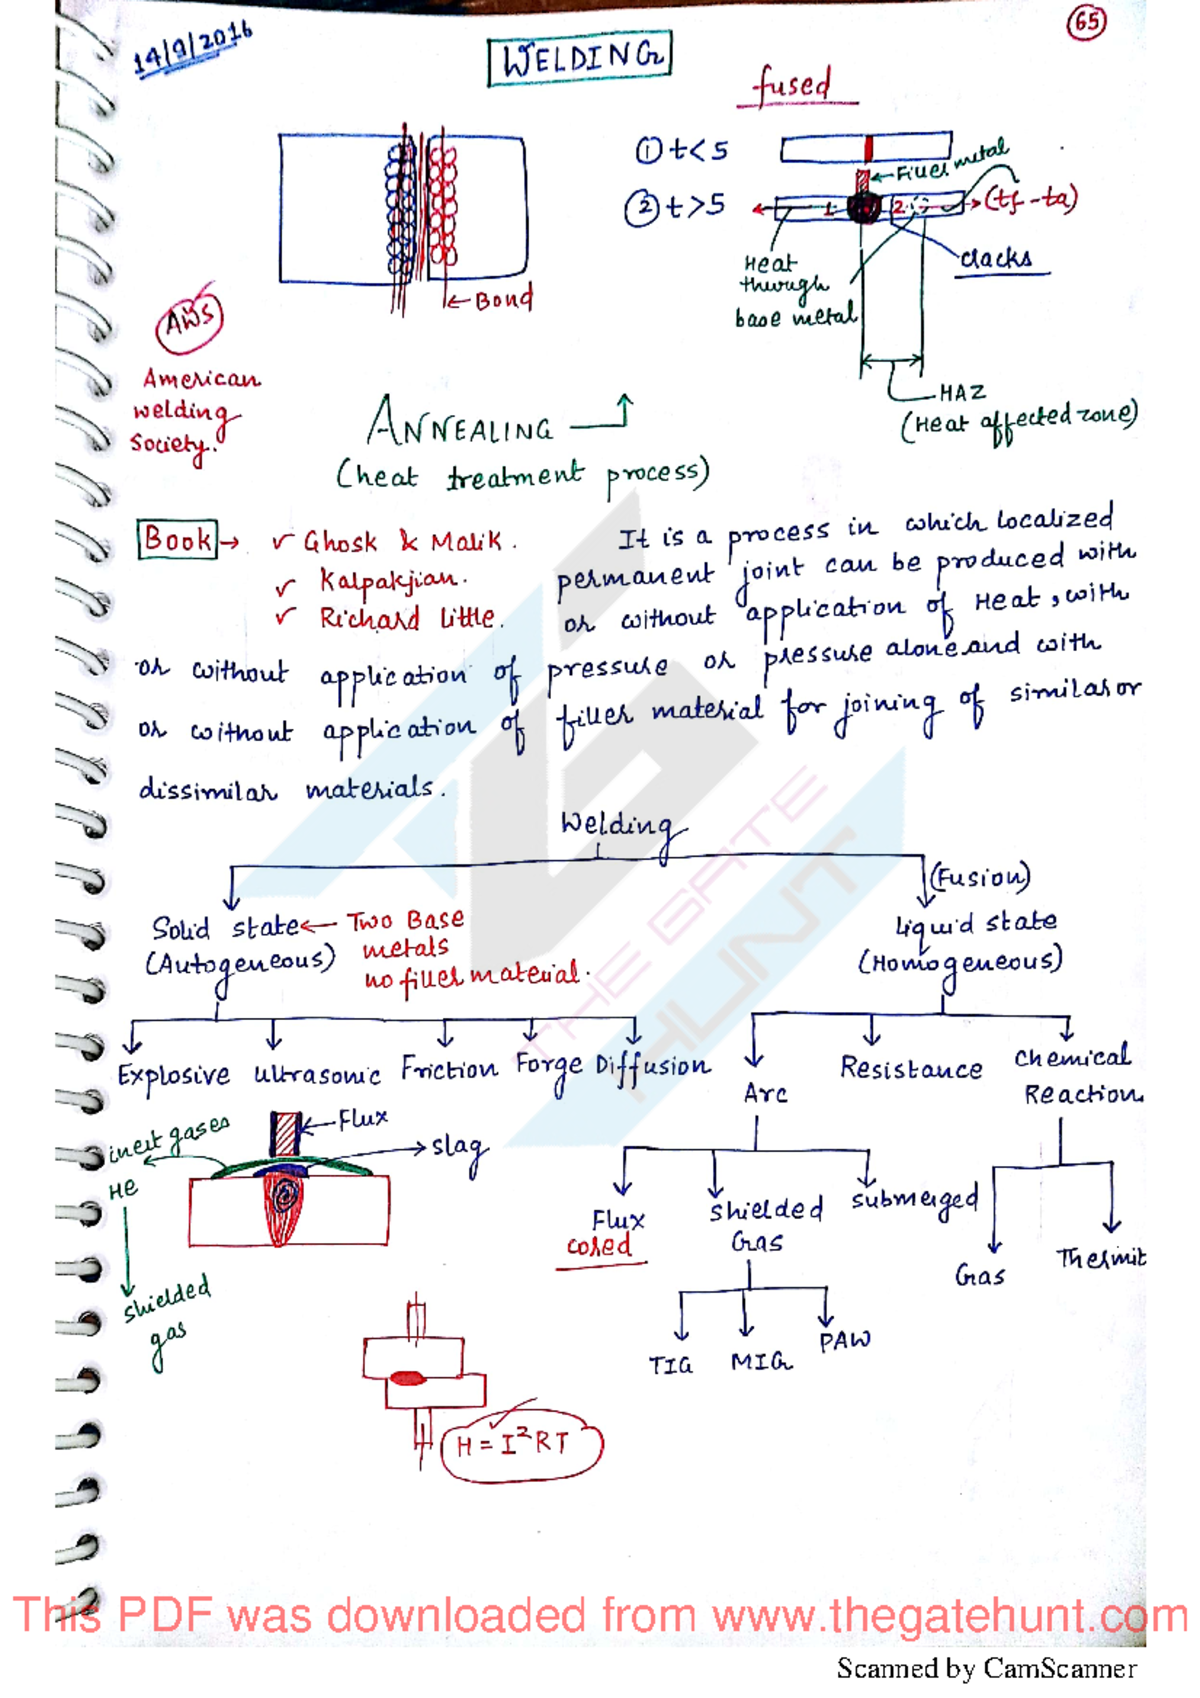 14/9/2016
WELDING
65
fused
① t<5
Filler metal
② t>5
1
2
(tf-ta)
Heat
through
base metal
cracks
Bond
AWS
American
welding
Society.
HAZ
(Heat affected zone)
ANNEALING
(heat treatment process)
Book → ✓ Ghosk & Malik.
✓ Kalpakjian.
✓ Richard Little.
It is a process in which localized
permanent joint can be produced with
or without application of Heat, with
or without application of pressure or pressure alone and with
or without application of filler material for joining of similar or
dissimilar materials.
Welding
Solid state ← Two Base
(Autogeneous) metals
no filler material.
(Fusion)
Liquid state
(Homogeneous)
Explosive Ultrasonic Friction Forge Diffusion
Arc
Resistance
Chemical
Reaction
Flux
inert gases
slag
He
shielded
gas
Flux
cored
shielded
Gas
submerged
Gas
Thermit
TIG MIG PAW
H = I²RT
THE GATE
HUNT
This PDF was downloaded from www.thegatehunt.com
Scanned by CamScanner